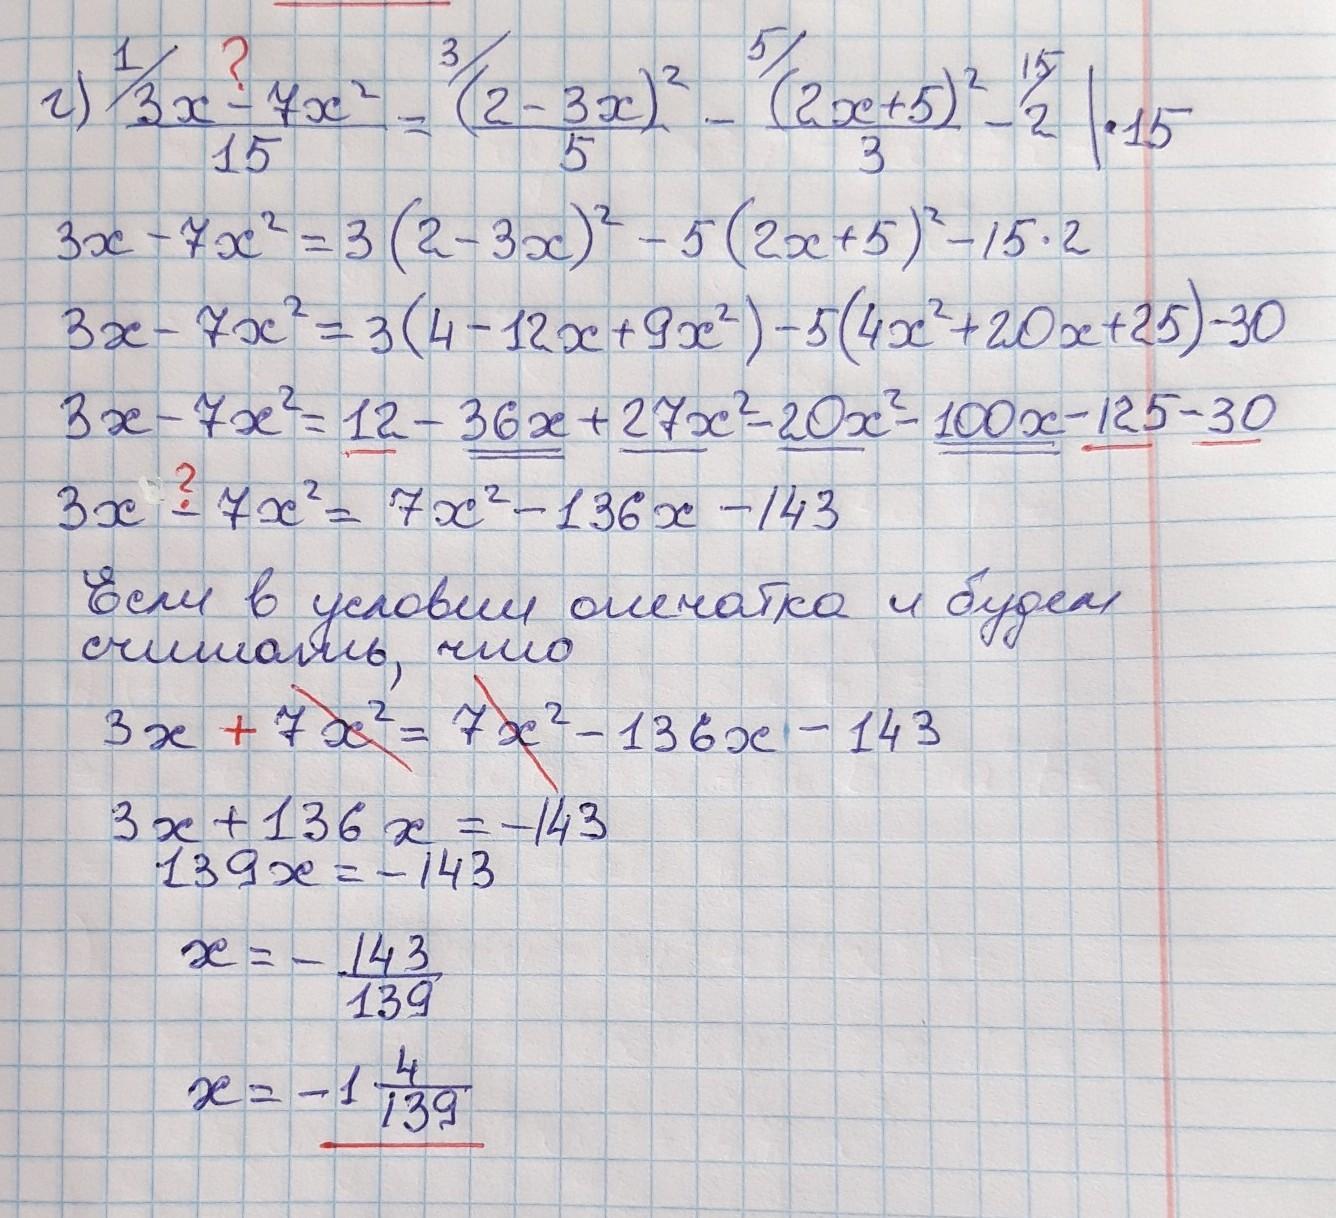 1/ ? 3/ 5/ 15/
г) (3x - 7x²)/15 = (2 - 3x)²/5 - (2x+5)²/3 - 2 | ·15
3x - 7x² = 3(2 - 3x)² - 5(2x+5)² - 15·2
3x - 7x² = 3(4 - 12x + 9x²) - 5(4x² + 20x + 25) - 30
3x - 7x² = 12 - 36x + 27x² - 20x² - 100x - 125 - 30
?
3x - 7x² = 7x² - 136x - 143
Если в условии опечатка и будем
считать, что
3x + 7x² = 7x² - 136x - 143
3x + 136x = -143
139x = -143
x = - 143/139
x = -1 4/139